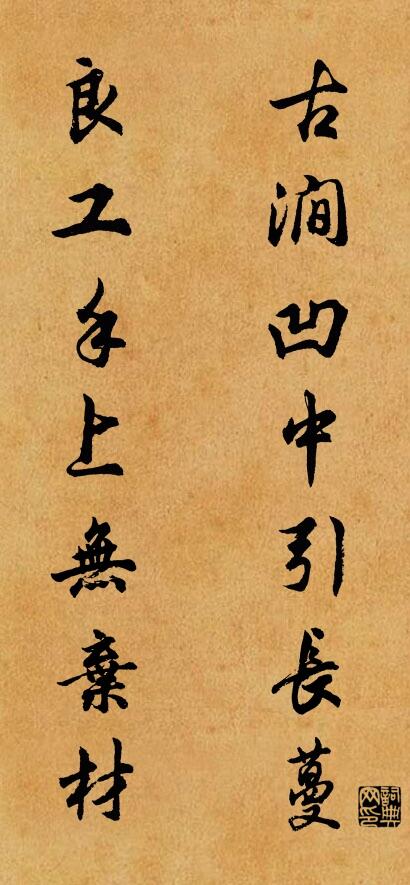 古澗凹中引長蔓
良工手上無棄材
詞典网印